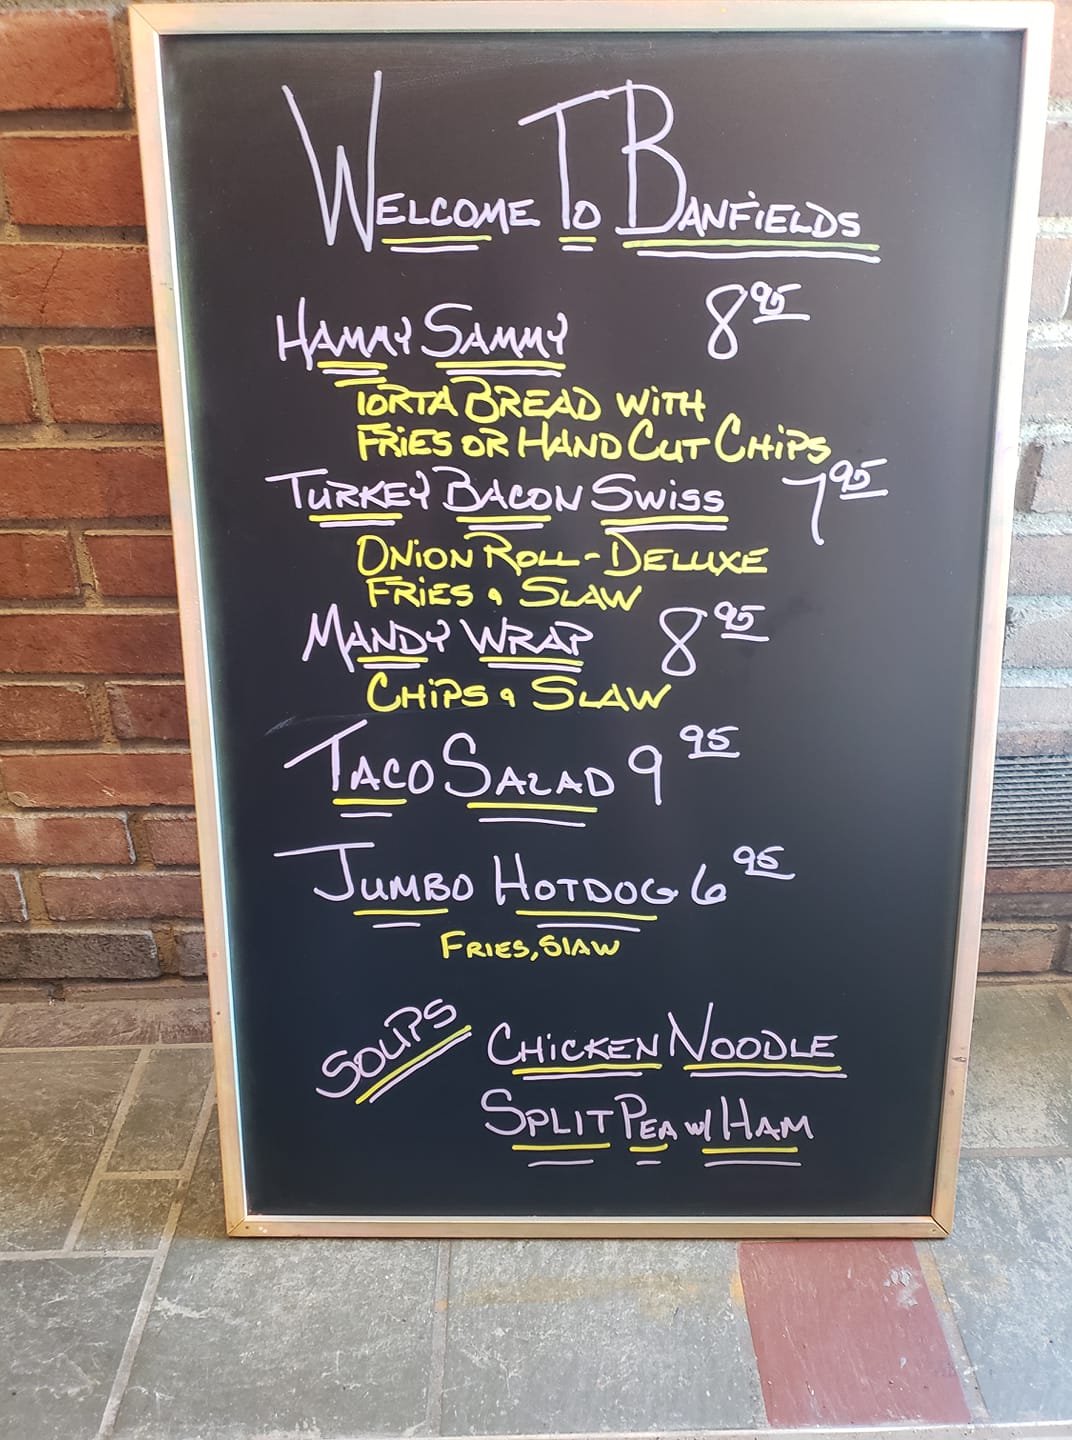 WELCOME TO BANFIELDS
HAMMY SAMMY 8 95
TORTA BREAD WITH
FRIES OR HAND CUT CHIPS
TURKEY BACON SWISS 7 95
ONION ROLL - DELUXE
FRIES & SLAW
MANDY WRAP 8 95
CHIPS & SLAW
TACO SALAD 9 95
JUMBO HOTDOG 6 95
FRIES, SLAW
SOUPS CHICKEN NOODLE
SPLIT PEA W/ HAM